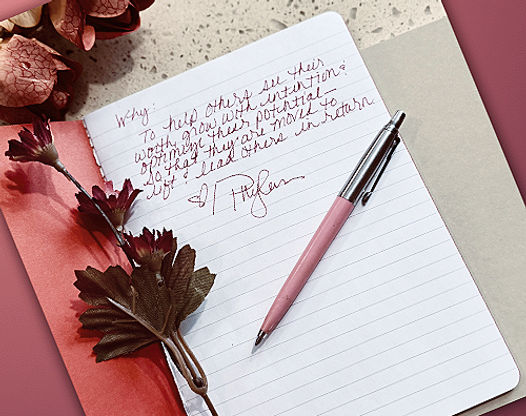 Why:
To help others see their
worth, grow with intention &
optimize their potential—
so that they are moved to
lift & lead others in return